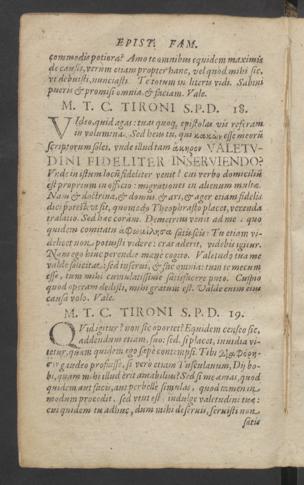 EPIST. FAM.
commodis potiora? Amo te omnibus equidem maximis
de causis, verum etiam propter hanc, vel quod mihi sic,
ut debuisti, nunciasti. Te totum in literis vidi. Sabini
pueris & promisi omnia & faciam. Vale.
M. T. C. TIRONI S.P.D. 18.
Video quid agas: tuas quoque epistolas vis referri
in volumina. Sed heus tu, qui κανὼν esse meorū
scriptorum soles, unde illud tam ἄκυρον VALETV-
DINI FIDELITER INSERVIENDO?
Vnde in istum locū fideliter venit? cui verbo domiciliū
est proprium in officio: migrationes in alienum multæ.
Nam & doctrina, & domus, & ars, & ager etiam fidelis
dici potest: ut sit, quomodo Theophrasto placet, verecunda
tralatio. Sed hæc corám. Demetrius venit ad me: quo
quidem comitatu satis scitè: Tu etiam vi-
delicet non potuisti videre: cras aderit, videbis igitur.
Nam ego hinc perendie mane cogito. Valetudo tua me
valde solicitat: sed inservi, & fac omnia: tum te mecum
esse, tum mihi cumulatissime satisfacere puto. Cuspio
quod operam dedisti, mihi gratum est. Valde enim eius
causa volo. Vale.
M. T. C. TIRONI S.P.D. 19.
Quid igitur? non sic oportet? Equidem censeo sic,
addendum etiam, suo: sed, si placet, invidia vi-
tetur, quam quidem ego sæpe contempsi. Tibi
gaudeo profuisse, si vero etiam Tusculanum, Dij bo-
ni, quam mihi illud erit amabilius? Sed si me amas, quod
quidem aut facis, aut perbelle simulas, quod tamen in
modum procedit, sed utut est, indulge valetudini tuæ:
cui quidem tu adhuc, dum mihi deservis, servisti non
satis